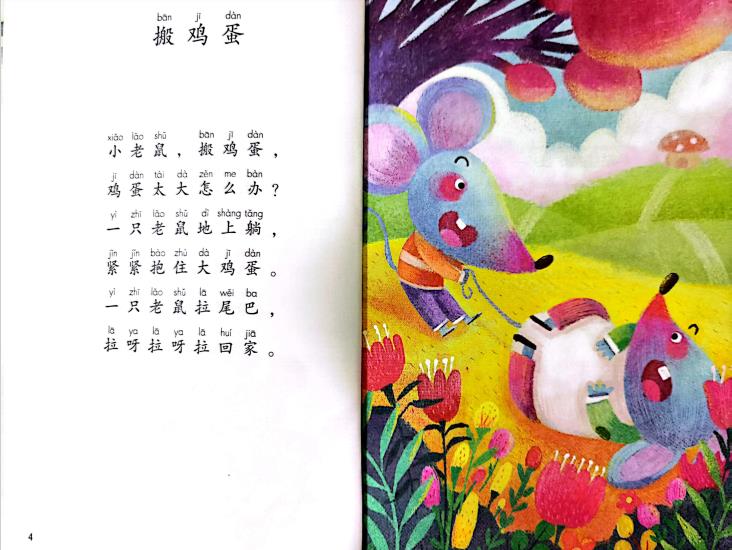 bān jī dàn
搬鸡蛋
xiǎo lǎo shǔ bān jī dàn
小老鼠，搬鸡蛋，
jī dàn tài dà zěn me bàn
鸡蛋太大怎么办？
yì zhī lǎo shǔ dì shàng tǎng
一只老鼠地上躺，
jǐn jǐn bào zhù dà jī dàn
紧紧抱住大鸡蛋。
yì zhī lǎo shǔ lā wěi ba
一只老鼠拉尾巴，
lā ya lā ya lā huí jiā
拉呀拉呀拉回家。
4